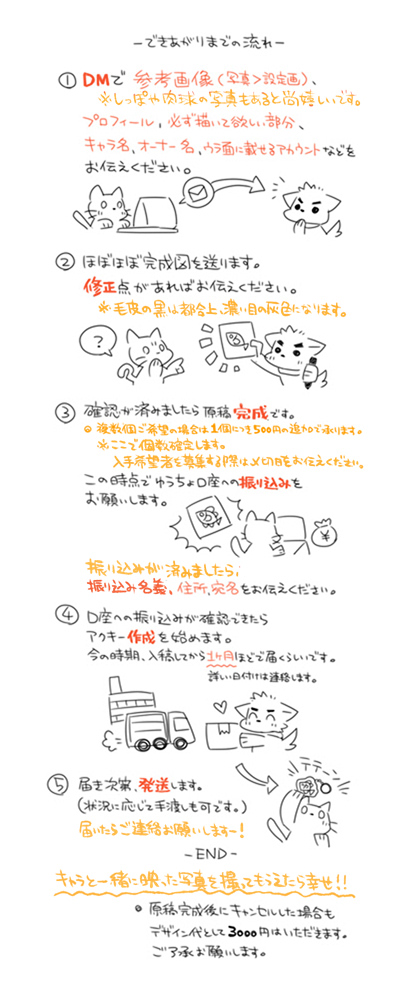 -できあがりまでの流れ-
① DMで 参考画像(写真>設定画)、
※しっぽや肉球の写真もあると尚嬉しいです。
プロフィール、必ず描いて欲しい部分、
キャラ名、オーナー名、ウラ面に載せるアカウントなどを
お伝えください。
② ほぼほぼ完成図を送ります。
修正点があればお伝えください。
※毛皮の黒は都合上、濃い目の灰色になります。
?
③ 確認が済みましたら原稿完成です。
● 複数個ご希望の場合は1個につき500円の追加で承ります。
※ここで個数確定します。
入手希望者を募集する際は〆切日をお伝えください。
この時点でゆうちょ口座への振り込みを
お願いします。
¥
振り込みが済みましたら、
振り込み名義、住所、宛名をお伝えください。
④ 口座への振り込みが確認できたら
アクキー作成を始めます。
今の時期、入稿してから1ヶ月ほどで届くらいです。
詳しい日付けは連絡します。
⑤ 届き次第、発送します。
(状況に応じて手渡しも可です。)
届いたらご連絡お願いしますー!
テテーン
-END-
キャラと一緒に映った写真を撮ってもらえたら幸せ!!
● 原稿完成後にキャンセルした場合も
デザイン代として3000円はいただきます。
ご了承お願いします。